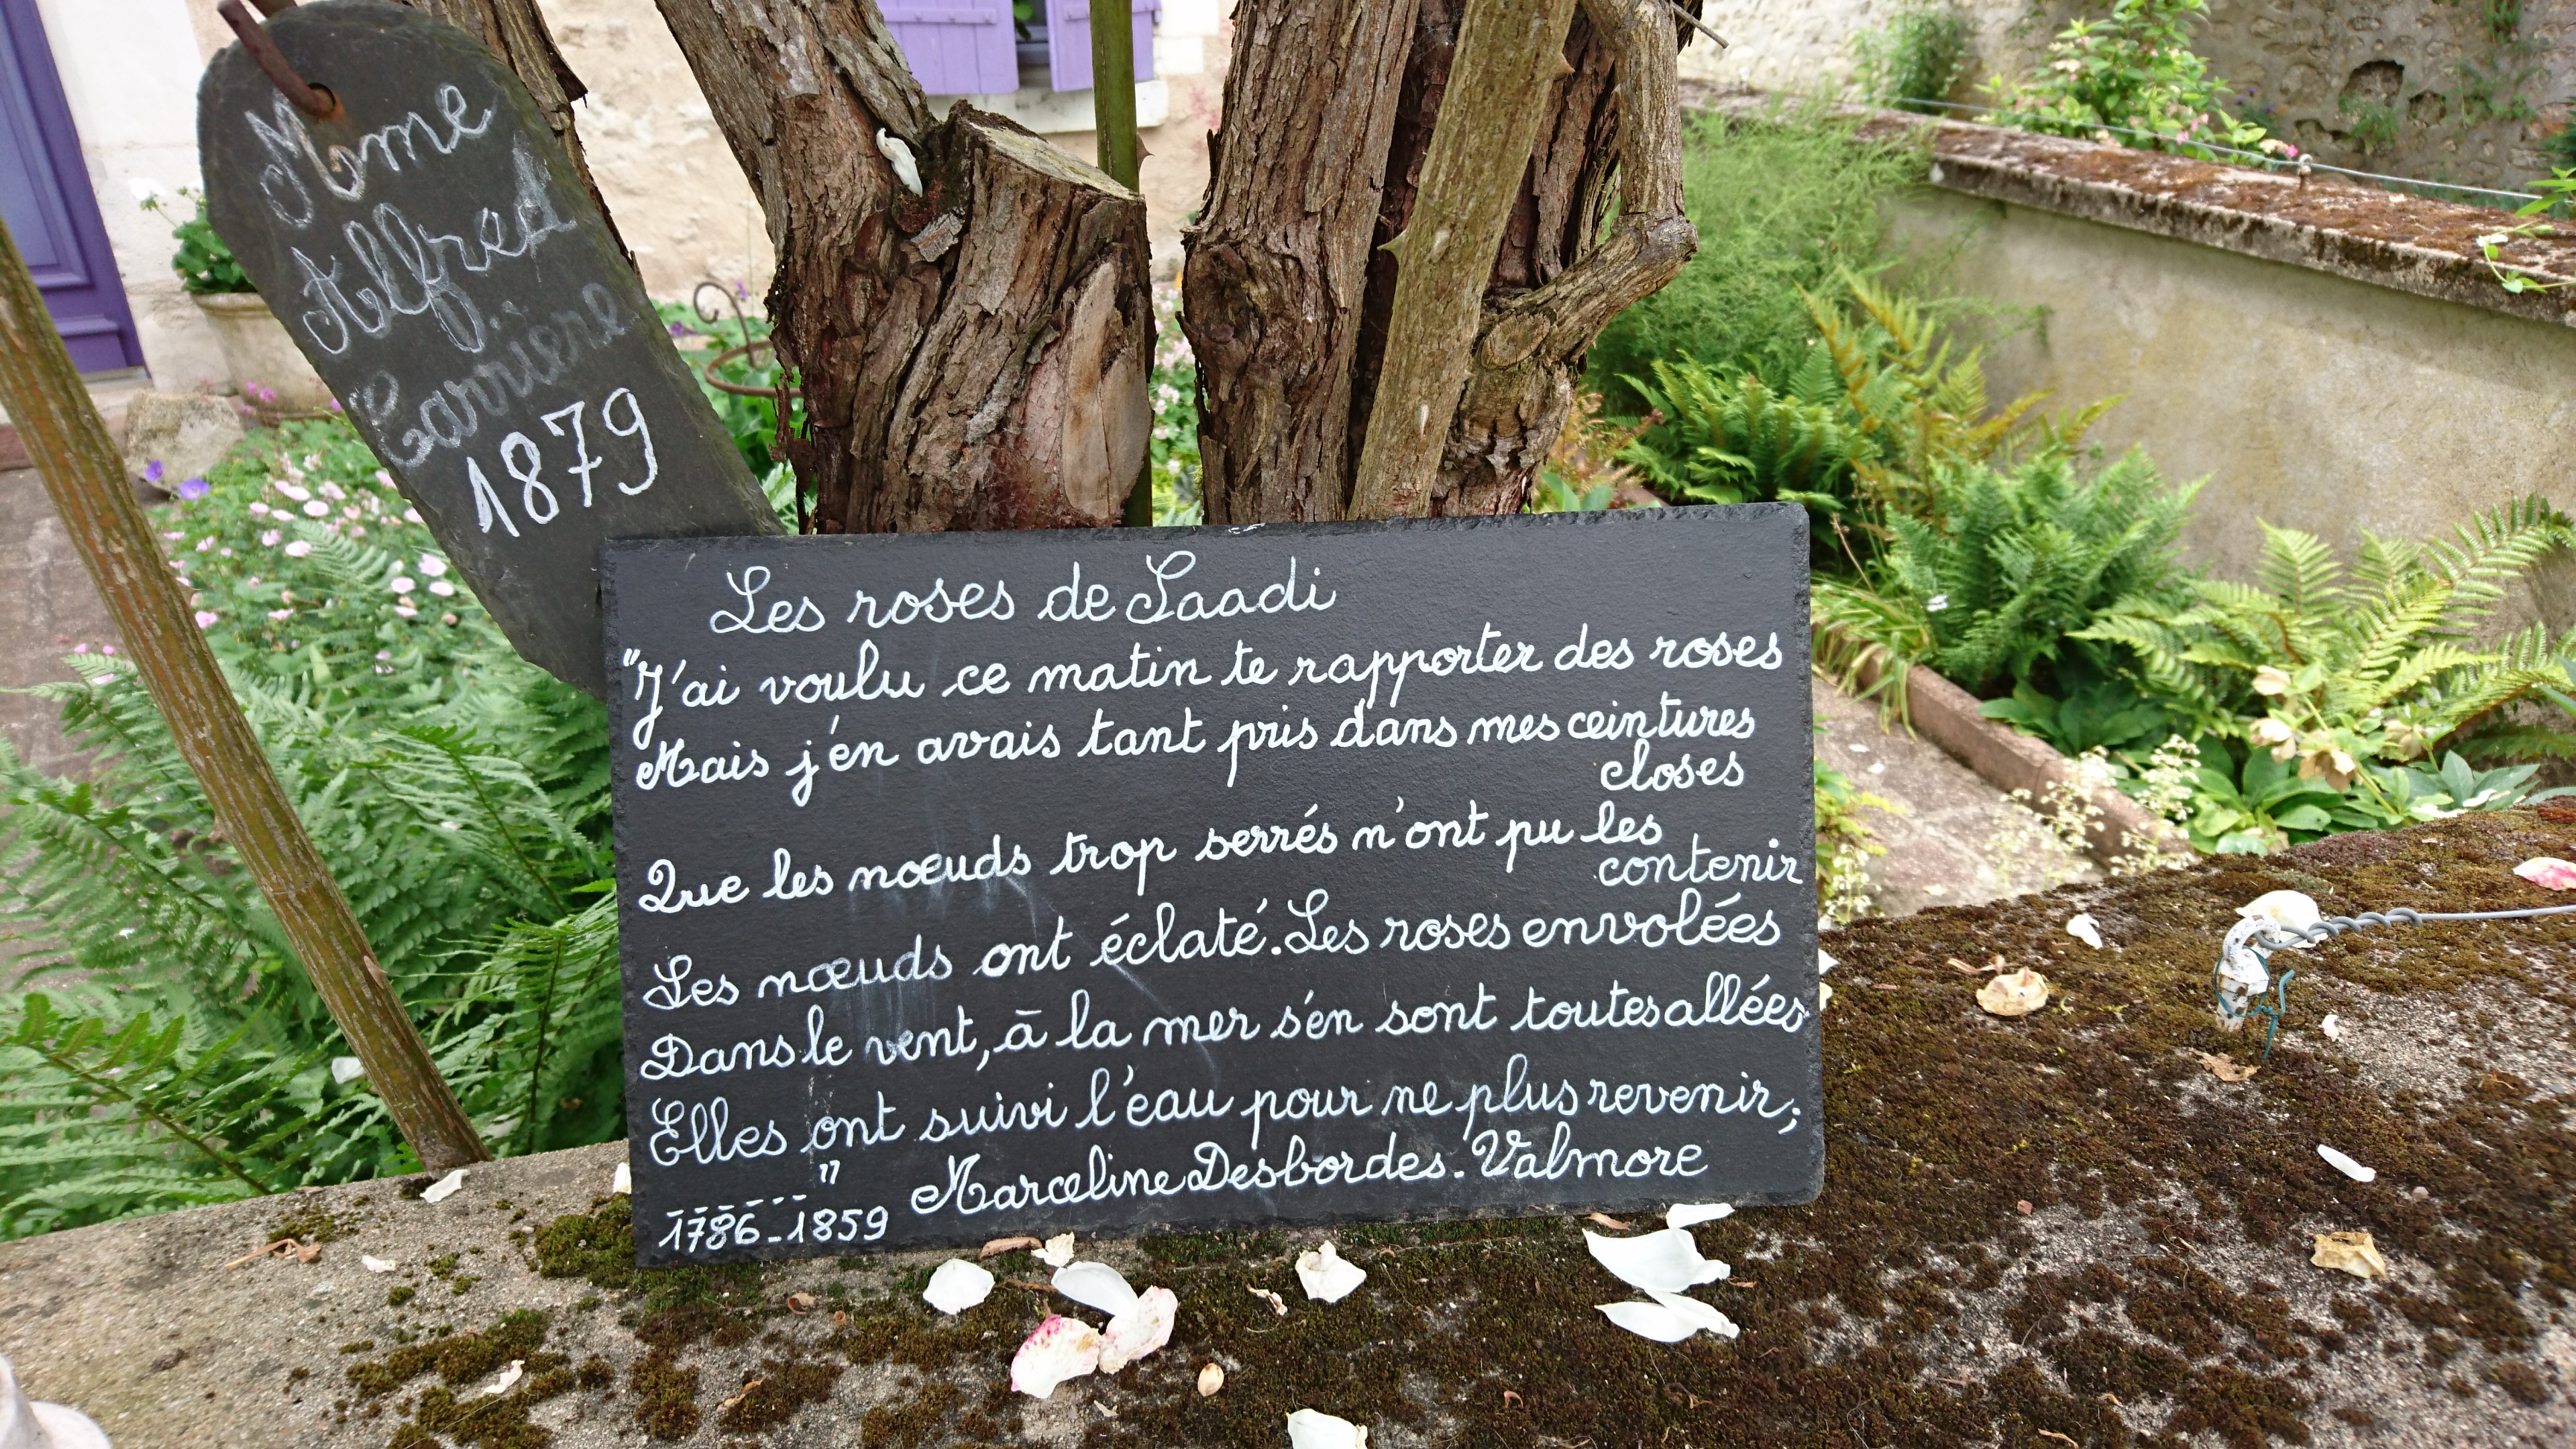 Mme
Alfred
Carrière
1879
Les roses de Saadi
"J'ai voulu ce matin te rapporter des roses
Mais j'en avais tant pris dans mes ceintures
closes
Que les nœuds trop serrés n'ont pu les
contenir
Les nœuds ont éclaté. Les roses envolées
Dans le vent, à la mer s'en sont toutes allées
Elles ont suivi l'eau pour ne plus revenir;
------"
Marceline Desbordes-Valmore
1786-1859